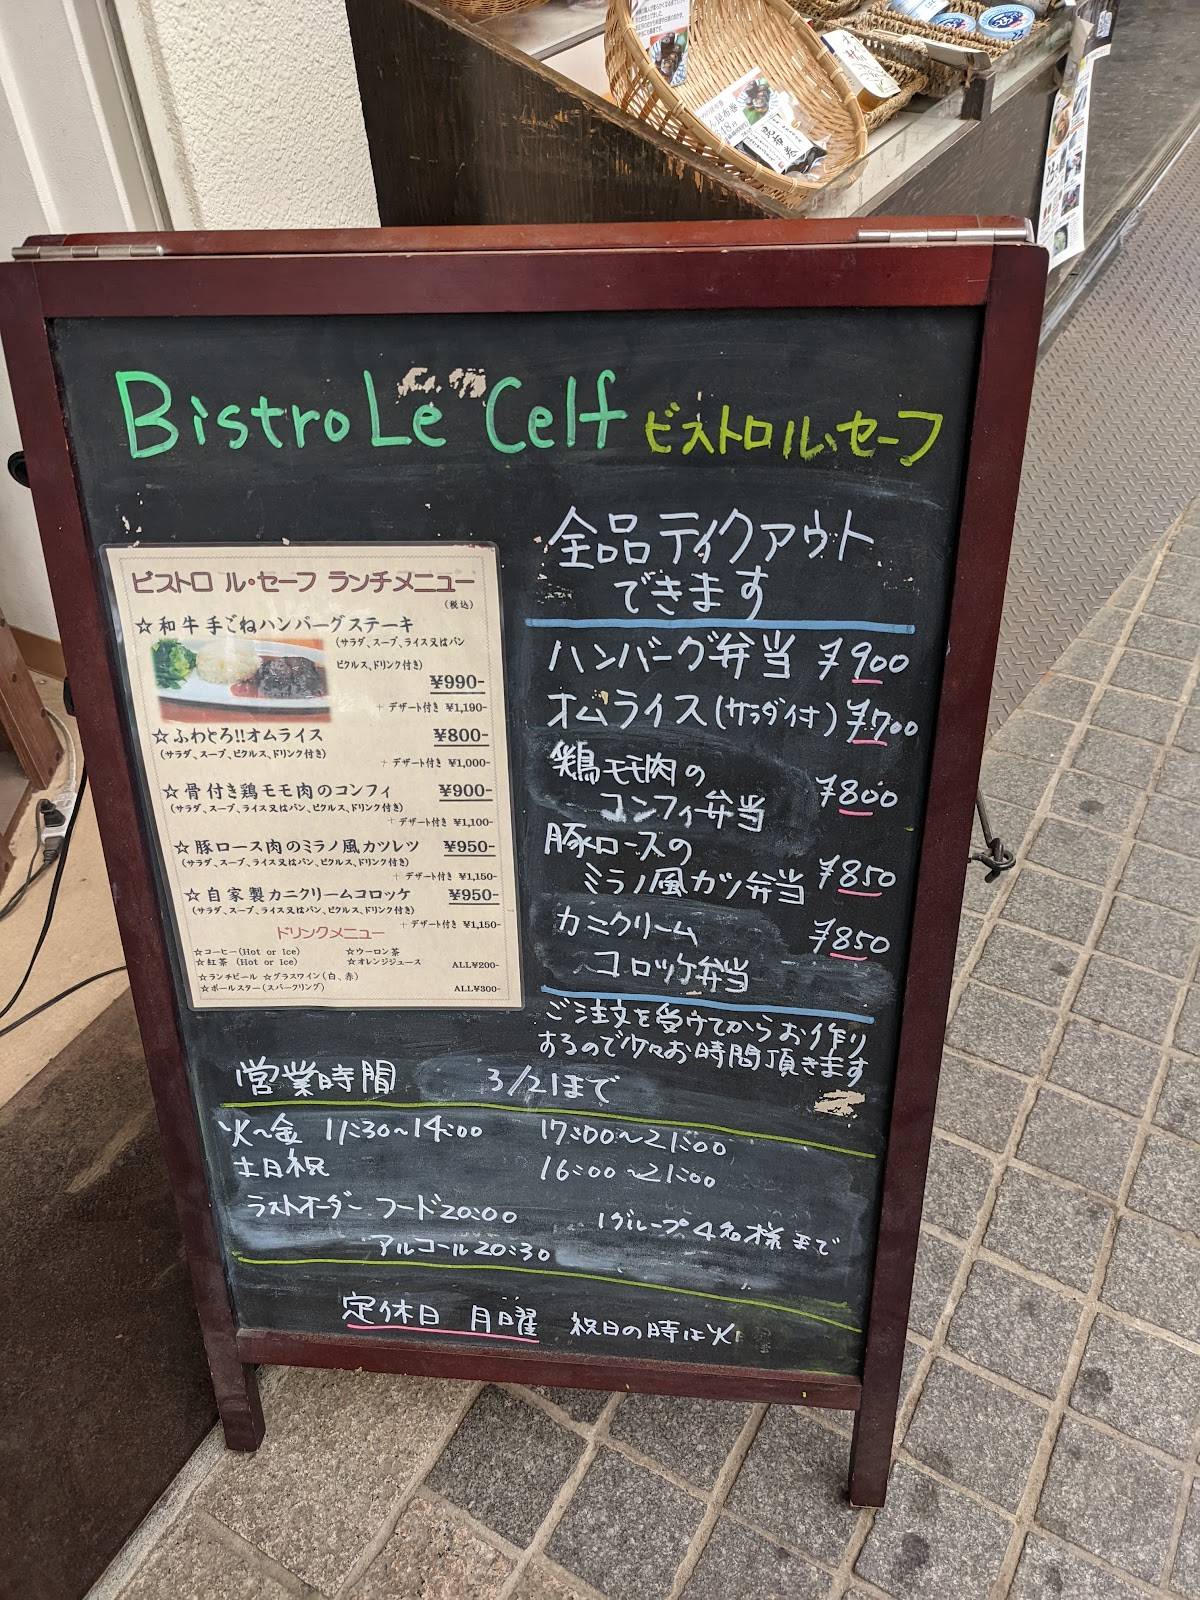 Bistro Le Celf ビストロ ル・セーフ
ビストロ ル・セーフ ランチメニュー
(税込)
☆和牛手ごねハンバーグステーキ
(サラダ、スープ、ライス又はパン
ピクルス、ドリンク付き)
¥990-
+ デザート付き ¥1,190-
☆ふわとろ!!オムライス ¥800-
(サラダ、スープ、ピクルス、ドリンク付き)
+ デザート付き ¥1,000-
☆骨付き鶏モモ肉のコンフィ ¥900-
(サラダ、スープ、ライス又はパン、ピクルス、ドリンク付き)
+ デザート付き ¥1,100-
☆豚ロース肉のミラノ風カツレツ ¥950-
(サラダ、スープ、ライス又はパン、ピクルス、ドリンク付き)
+ デザート付き ¥1,150-
☆自家製カニクリームコロッケ ¥950-
(サラダ、スープ、ライス又はパン、ピクルス、ドリンク付き)
+ デザート付き ¥1,150-
ドリンクメニュー
☆コーヒー(Hot or Ice) ☆ウーロン茶
☆紅茶 (Hot or Ice) ☆オレンジジュース ALL¥200-
☆ランチビール ☆グラスワイン(白、赤)
☆ポールスター(スパークリング) ALL¥300-
全品テイクアウト
できます
ハンバーグ弁当 ¥900
オムライス(サラダ付) ¥700
鶏モモ肉の
コンフィ弁当 ¥800
豚ロースの
ミラノ風カツ弁当 ¥850
カニクリーム
コロッケ弁当 ¥850
ご注文を受けてからお作り
するので少々お時間頂きます
営業時間 3/21まで
火〜金 11:30〜14:00 17:00〜21:00
土日祝 16:00〜21:00
ラストオーダー フード20:00 1グループ4名様まで
アルコール20:30
定休日 月曜 祝日の時は火